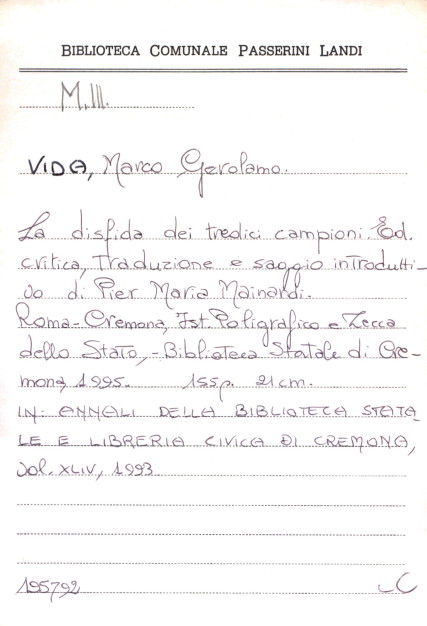 BIBLIOTECA COMUNALE PASSERINI LANDI
M.III.
VIDA, Marco Gerolamo.
La disfida dei tredici campioni. Ed.
critica, traduzione e saggio introdutti-
vo di Pier Maria Mainardi.
Roma-Cremona, Ist. Poligrafico e Zecca
dello Stato, - Biblioteca Statale di Cre-
mona, 1995. 155p. 21cm.
IN: ANNALI DELLA BIBLIOTECA STATA-
LE E LIBRERIA CIVICA DI CREMONA,
vol. XLIV, 1993
195792